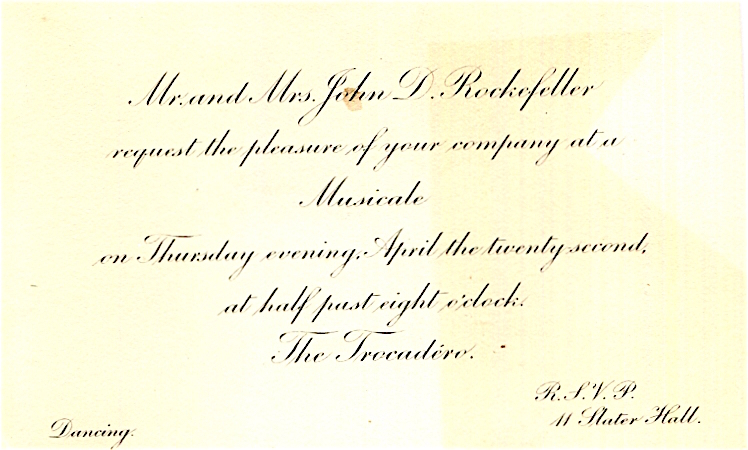 Mr. and Mrs. John D. Rockefeller
request the pleasure of your company at a
Musicale
on Thursday evening, April the twenty-second,
at half past eight o'clock.
The Trocadéro.
R.S.V.P.
11 Slater Hall.
Dancing.